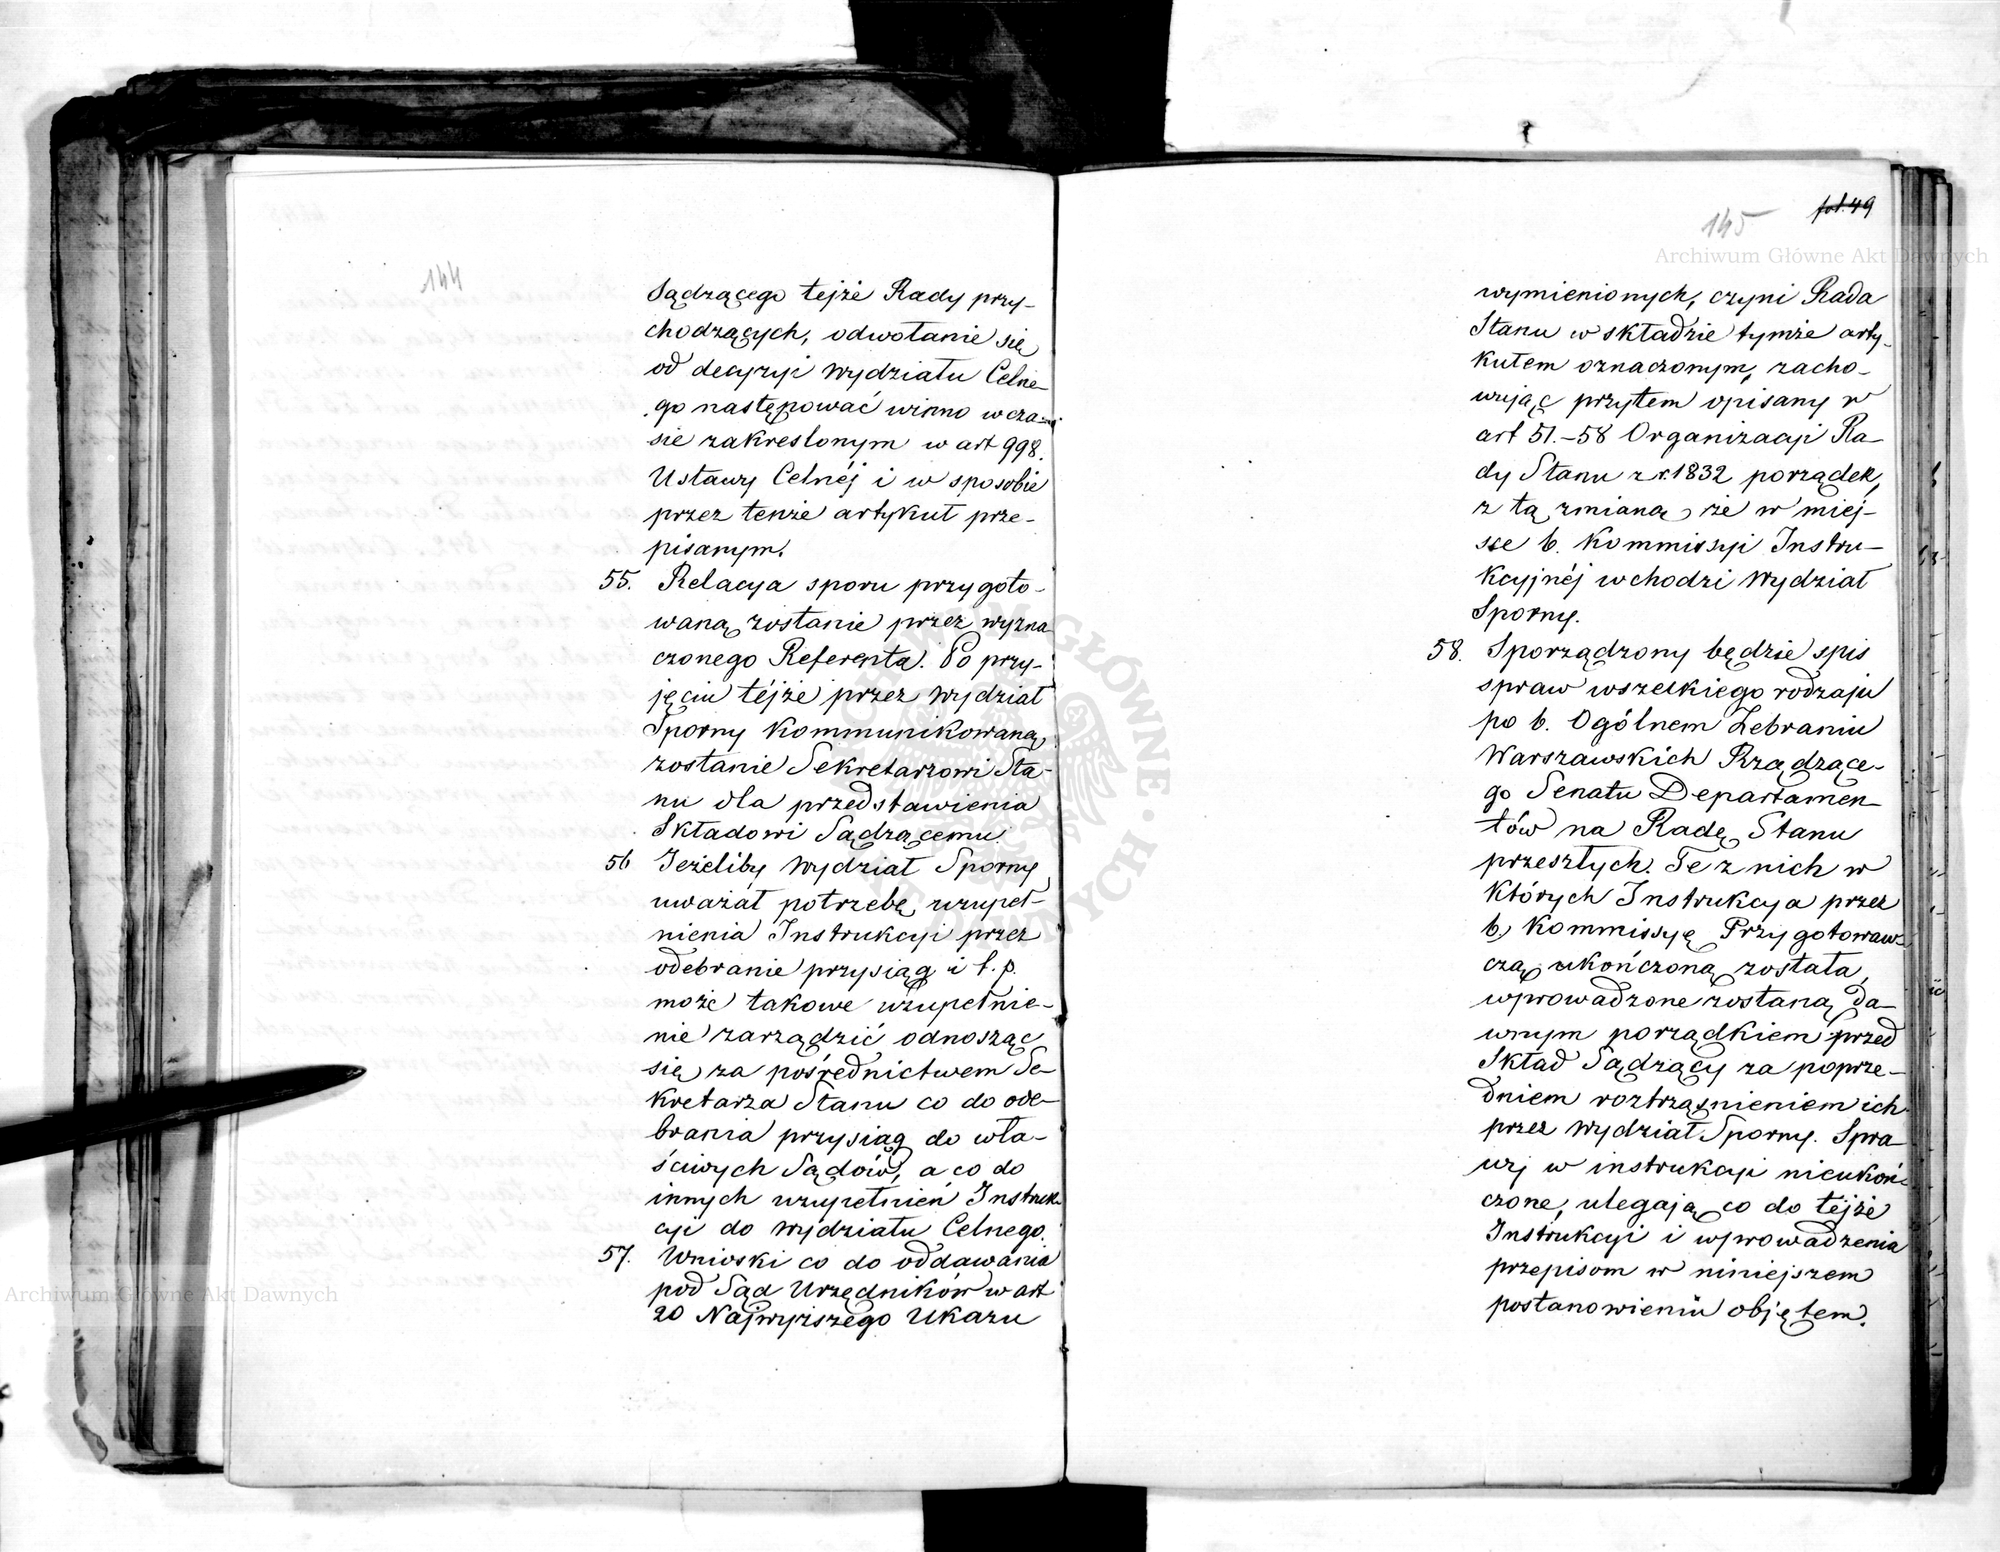 144
Sądzącego tejże Rady przy-
chodzących, odwołanie się
od decyzyi Wydziału Celne-
go następować winno w cza-
sie zakreślonym w art 998.
Ustawy Celnéj i w sposobie
przez tenże artykuł prze-
pisanym.
55. Relacya sporu przygoto-
waną zostanie przez wyzna
czonego Referenta. Po przy-
jęciu téjże przez Wydział
Sporny kommunikowaną
zostanie Sekretarzowi Sta-
nu dla przedstawienia
Składowi Sądzącemu.
56 Jeżeliby Wydział Sporny
uważał potrzebę uzupeł-
nienia Instrukcyi przez
odebranie przysiąg i t. p.
może takowe uzupełnie-
nie zarządzić odnosząc
się za pośrednictwem Se-
kretarza Stanu co do ode-
brania przysiąg do wła-
ściwych Sądów, a co do
innych uzupełnień Instruk-
cyi do Wydziału Celnego.
57. Wnioski co do oddawania
pod Sąd Urzędników w art
20 Najwyższego Ukazu
fol. 49
145
wymienionych, czyni Rada
Stanu w składzie tymże arty-
kułem oznaczonym, zacho-
wując przytem opisany w
art 51.-58 Organizacyi Ra-
dy Stanu z r. 1832 porządek,
z tą zmianą, że w miej-
sce b. Kommissyi Instru-
kcyjnéj wchodzi Wydział
Sporny.
58. Sporządzony będzie spis
spraw wszelkiego rodzaju
po b. Ogólnem Zebraniu
Warszawskich Rządzące-
go Senatu Departamen-
tów na Radę Stanu
przeszłych. Te z nich w
których Instrukcya przez
b. Kommissyę Przygotowaw-
czą ukończoną została,
wprowadzone zostaną da-
wnym porządkiem przed
Skład Sądzący za poprze-
dniem roztrząśnieniem ich
przez Wydział Sporny. Spra
wy w instrukcyi nieukoń-
czone, ulegają co do téjże
Instrukcyi i wprowadzenia
przepisom w niniejszem
postanowieniu objętem.
Archiwum Główne Akt Dawnych
Archiwum Główne Akt Dawnych